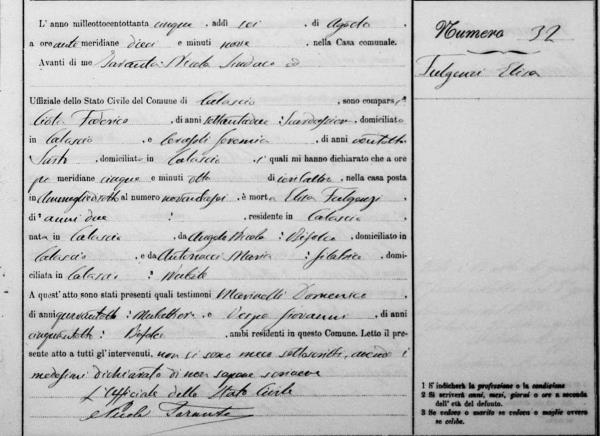 L' anno milleottocentottanta cinque , addì sei , di Agosto ,
a ore ante meridiane dieci e minuti nove , nella Casa comunale.
Avanti di me Taranta Nicola Sindaco ed
Uffiziale dello Stato Civile del Comune di Calascio , sono comparsi
Federico , di anni settantadue : , domiciliato
in Calascio , e Geremia , di anni ventotto
Sarto , domiciliato in Calascio , i quali mi hanno dichiarato che a ore
meridiane cinque e minuti otto di , nella casa posta
in al numero , è morta Elisa Fulgenzi
di anni due : , residente in Calascio ,
nata in Calascio , da Angelo Nicola : Bifolco , domiciliato in
Calascio , e da Antonacci Maria : filatrice , domi-
ciliata in Calascio :
A quest' atto sono stati presenti quali testimoni Marinelli Domenico ,
di anni : , e Vespa Giovanni , di anni
cinquantotto : Bifolco , ambi residenti in questo Comune. Letto il pre-
sente atto a tutti gl' intervenuti, non si sono meco sottoscritti, avendo i
medesimi dichiarato di non sapere scrivere
L'Uffiziale dello Stato Civile
Nicola Taranta
Numero 32
Fulgenzi Elisa
1 S' indicherà la professione o la condizione
2 Si scriverà anni, mesi, giorni o ore a seconda
dell' età del defunto.
3 Se vedovo o marito se vedova o moglie ovvero
se celibe.